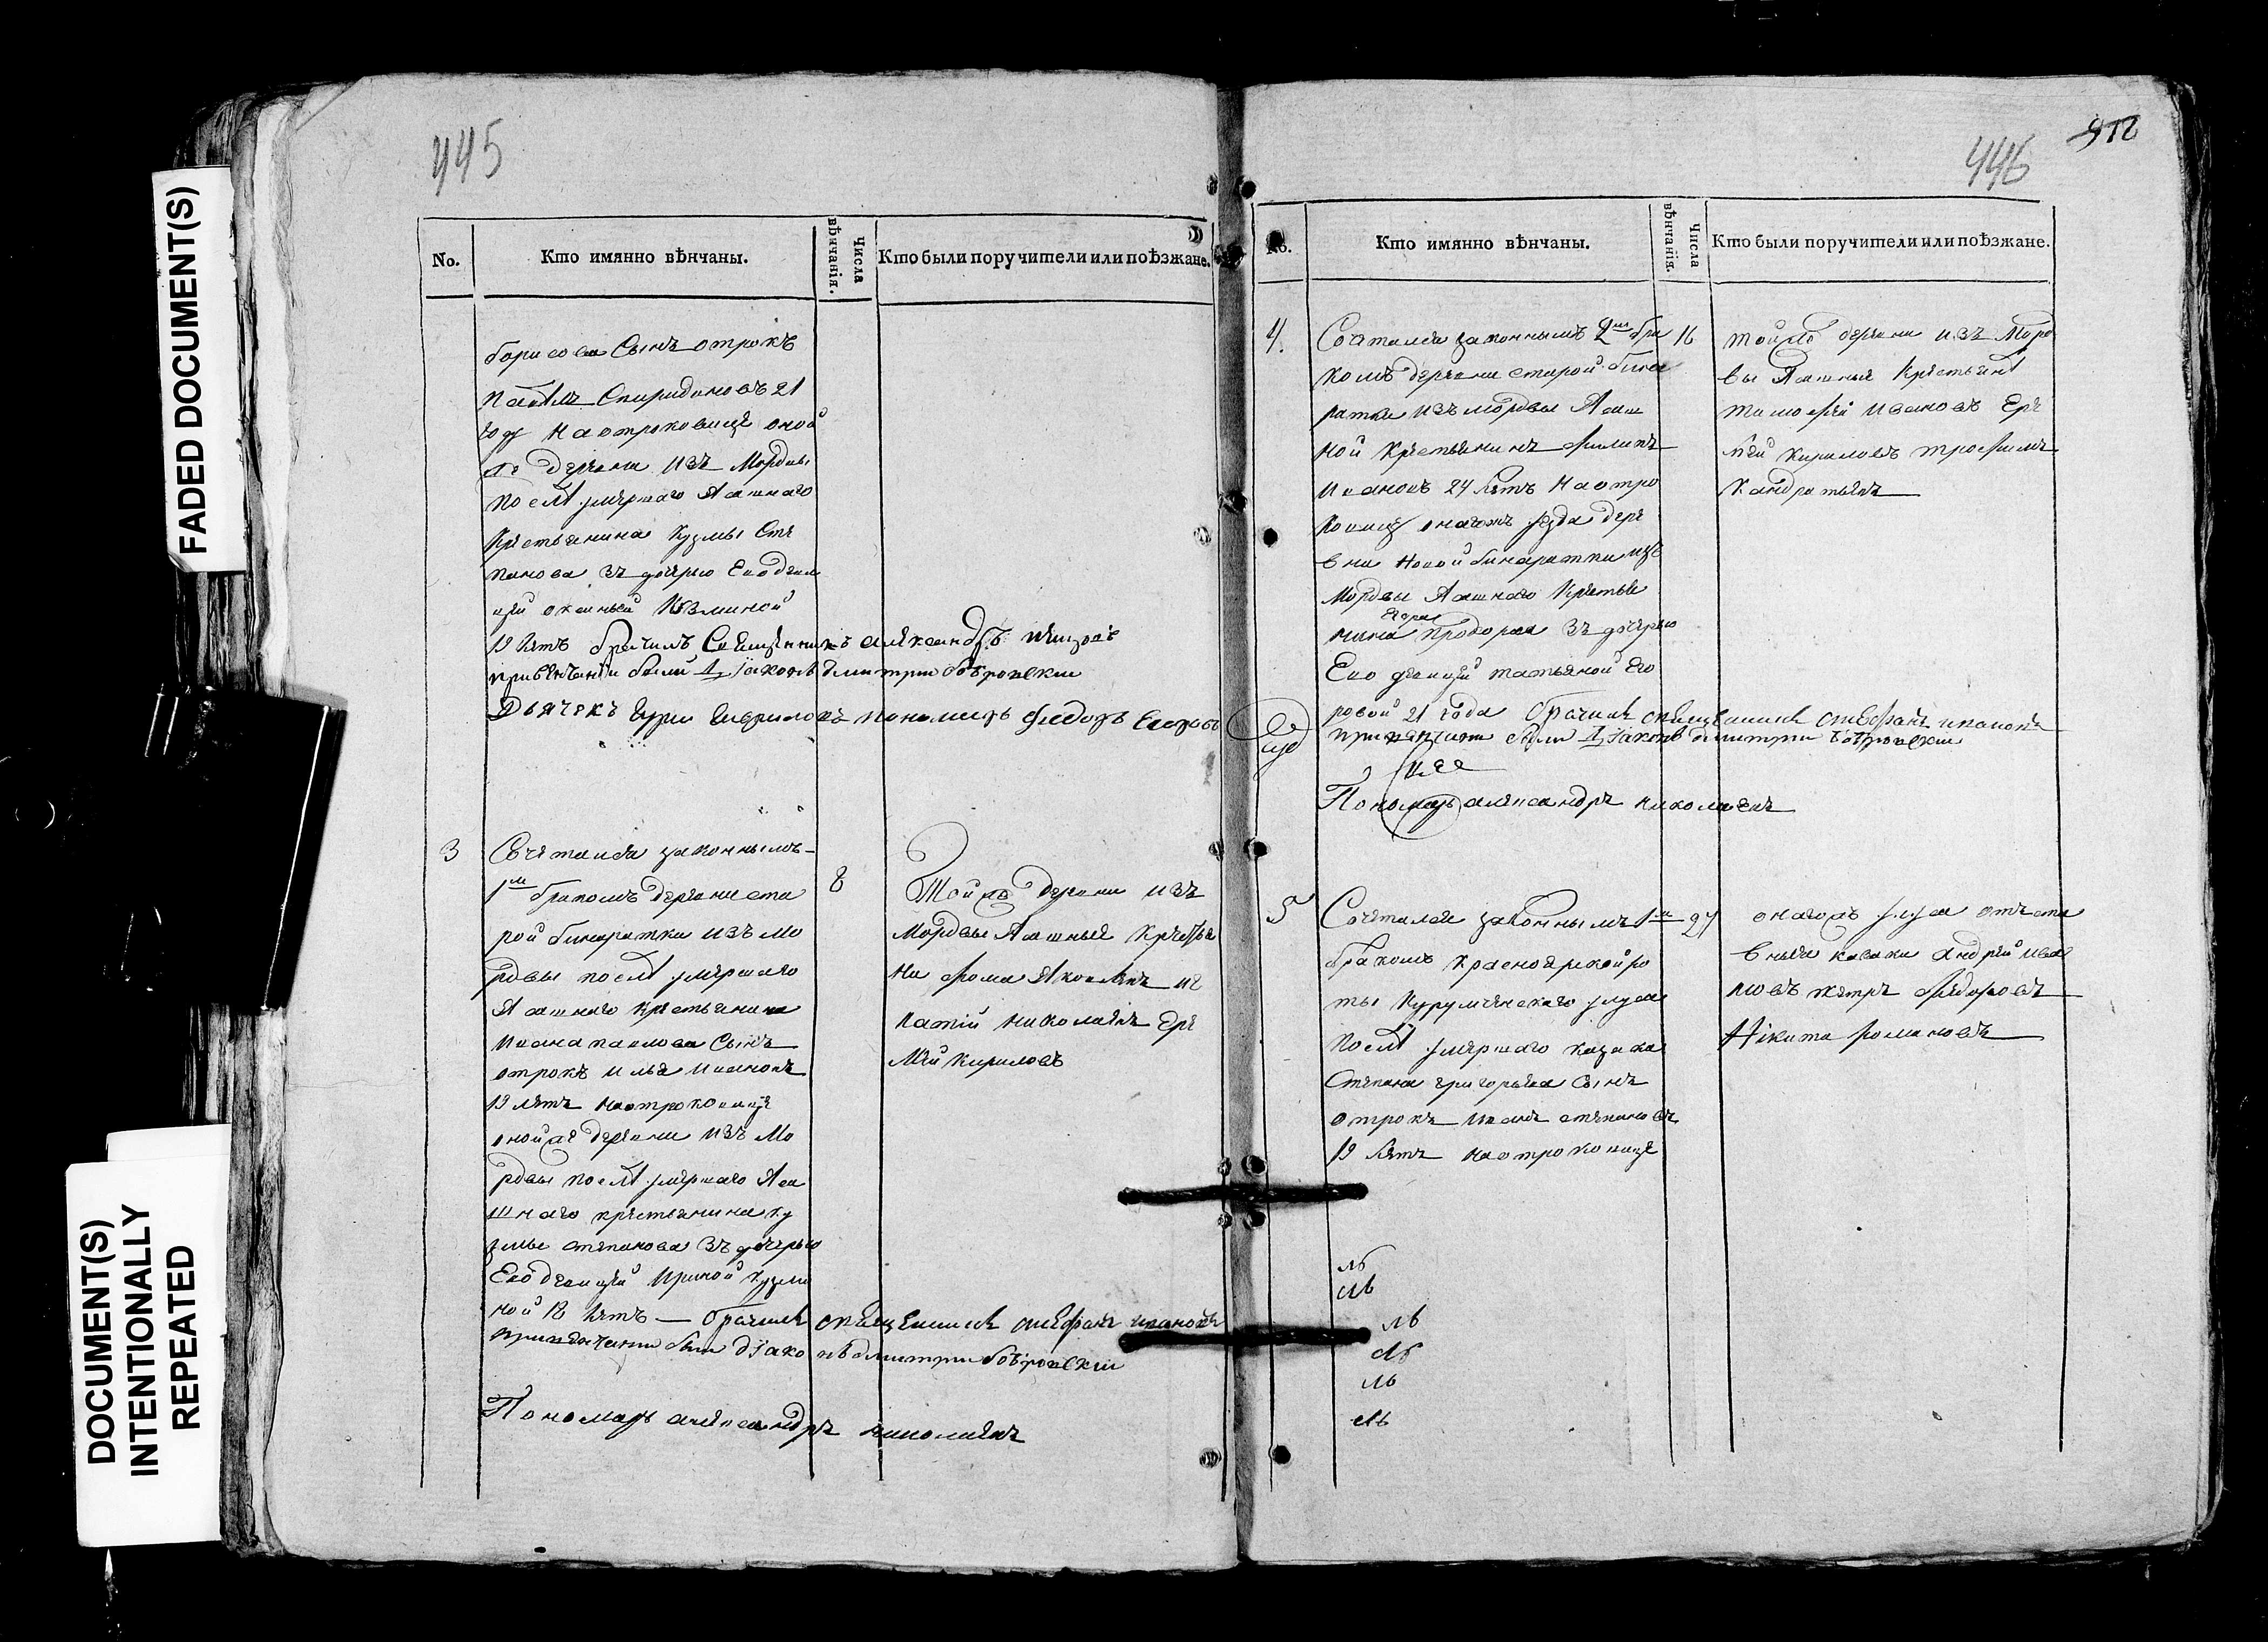 FADED DOCUMENT(S)
DOCUMENT(S)
INTENTIONALLY
REPEATED
445
No.
Кто имянно вѣнчаны.
Числа
вѣнчанія.
Кто были поручители или поѣзжане.
борисова Сынъ отрокъ
Спиридоновъ 21
году на отроковице оной
же деревни изъ Мордвы
послѣ умершаго Ясашнаго
крестьянина Кузмы Сте
панова зъ дочерью Ево деви
цей Козминой
19 летъ брачилъ Священникъ александръ
привенчани были Діаконъ дмитри бобровски
Дьячекъ Гаврилов пономарь федоръ
3
Сочетался законнымъ
1м бракомъ деревни ста
рой бинаратки изъ мо
рдвы послѣ умершаго
Ясашнаго крестьянина
Ивана павлова Сынъ
отрокъ илья ивановъ
19 летъ на отроковице
оной же деревни изъ Мо
рдвы послѣ умершаго Яса
шнаго крестьянина ку
змы степанова зъ дочерью
Ево девицей Ириной кузми
ной 18 летъ — брачилъ священникъ стефанъ ивановъ
привенчани были діаконъ дмитри бобровскіи
Пономарь александръ николаевъ
8
Той же деревни изъ
мордвы Ясашныя крестья
не фома Яковлевъ иг
натій николаевъ Ере
мей кириловъ
446
No.
Кто имянно вѣнчаны.
Числа
вѣнчанія.
Кто были поручители или поѣзжане.
4.
Сочетался законнымъ 2м бра
комъ деревни старой бина
ратки изъ мордвы Ясаш
ной крестьянинъ филипъ
ивановъ 24 летъ на отро
ковице онагожъ уезда дере
вни новой бинаратки изъ
мордвы Ясашнаго крестья
Егора
нина зъ дочерью
Ево девицей татьяной Его
ровой 21 года брачилъ священникъ стефанъ ивановъ
при венчани были Діаконъ дмитри бобровскіи
Пономарь александръ николаевъ
16
той же деревни изъ Морд
вы Ясашныя крестьянѣ
тимофей ивановъ Ере
мей кириловъ трофимъ
кандратьевъ
5
Сочетался законнымъ 1м
бракомъ красноярской ро
ты Курумченскаго
послѣ умершаго казака
Степана григорьева сынъ
отрокъ иванъ степановъ
19 летъ на отроковице
27
онагожъ отъста
вныя казаки андрей ива
новъ петръ федоровъ
Нікита романовъ